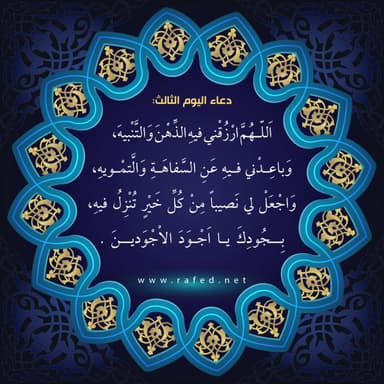 دعاء اليوم الثالث:
اَللّـهُمَّ ارْزُقْني فيهِ الذِّهْنَ وَالتَّنْبيهَ،
وَباعِدْني فيهِ عَنِ السَّفاهَةِ وَالتَّمْويهِ،
وَاجْعَلْ لي نَصيباً مِنْ كُلِّ خَيْر تُنْزِلُ فيهِ،
بِـجُودِكَ يـا اَجْوَدَ الاْجْوَديـنَ .
www.rafed.net